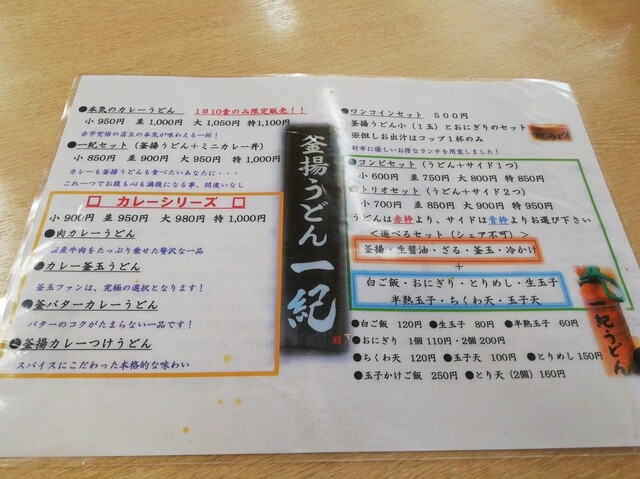 ●本気のカレーうどん　1日10食のみ限定販売！！
小 950円 並 1,000円 大 1,050円 特1,100円
赤字覚悟の店主の本気が味わえる一杯！
●一紀セット（釜揚うどん＋ミニカレー丼）
小 850円 並 900円 大 950円 特 1,000円
カレーも釜揚うどんも食べたいあなたに・・・
これ一つでお腹も心も満腹になる事、間違いなし
□ カレーシリーズ □
小 900円 並 950円 大 980円 特 1,000円
●肉カレーうどん
国産牛肉をたっぷり乗せた贅沢な一品
●カレー釜玉うどん
釜玉ファンは、究極の選択となります！
●釜バターカレーうどん
バターのコクがたまらない一品です！
●釜揚カレーつけうどん
スパイスにこだわった本格的な味わい
釜揚うどん 一紀
●ワンコインセット　５００円
釜揚うどん小（１玉）とおにぎりのセット
※但しお出汁はコップ１杯のみ
財布に優しいお得なランチを用意しました！
●コンビセット（うどん＋サイド１つ）
小 600円 並 750円 大 800円 特 850円
●トリオセット（うどん＋サイド２つ）
小 700円 並 850円 大 900円 特 950円
うどんは赤枠より、サイドは青枠よりお選び下さい
＜選べるセット（シェア不可）＞
釜揚・生醤油・ざる・釜玉・冷かけ
＋
白ご飯・おにぎり・とりめし・生玉子
半熟玉子・ちくわ天・玉子天
●白ご飯 120円 ●生玉子 80円 ●半熟玉子 60円
●おにぎり 1個 110円・2個 200円
●ちくわ天 120円 ●玉子天 100円 ●とりめし 150円
●玉子かけご飯 250円 ●とり天（2個）160円
一紀うどん